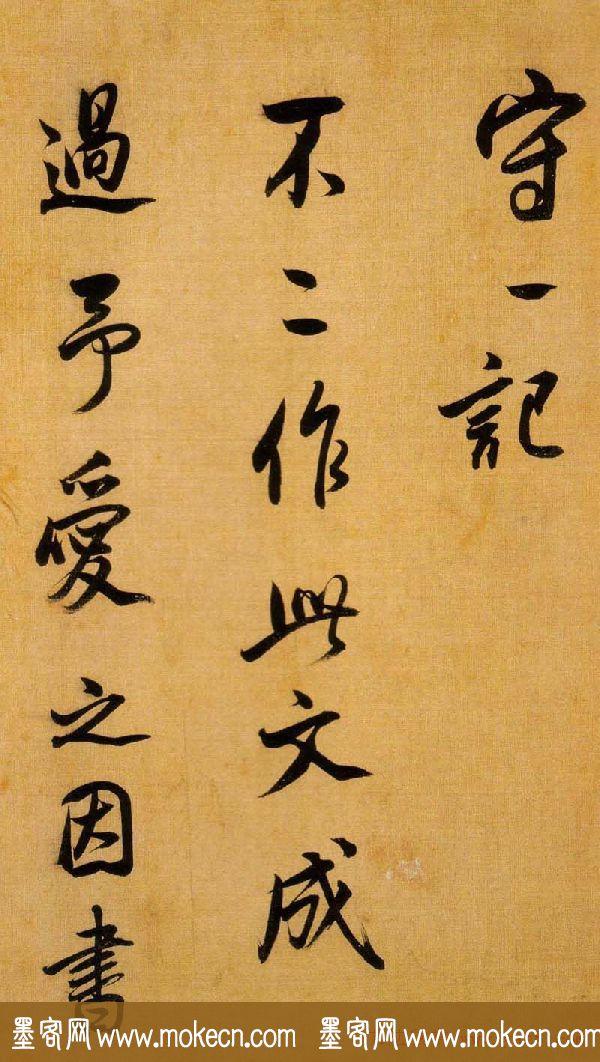 守一記
不二作此文成
過予愛之因書
墨客网 www.mokecn.com 墨客网 www.mokecn.com